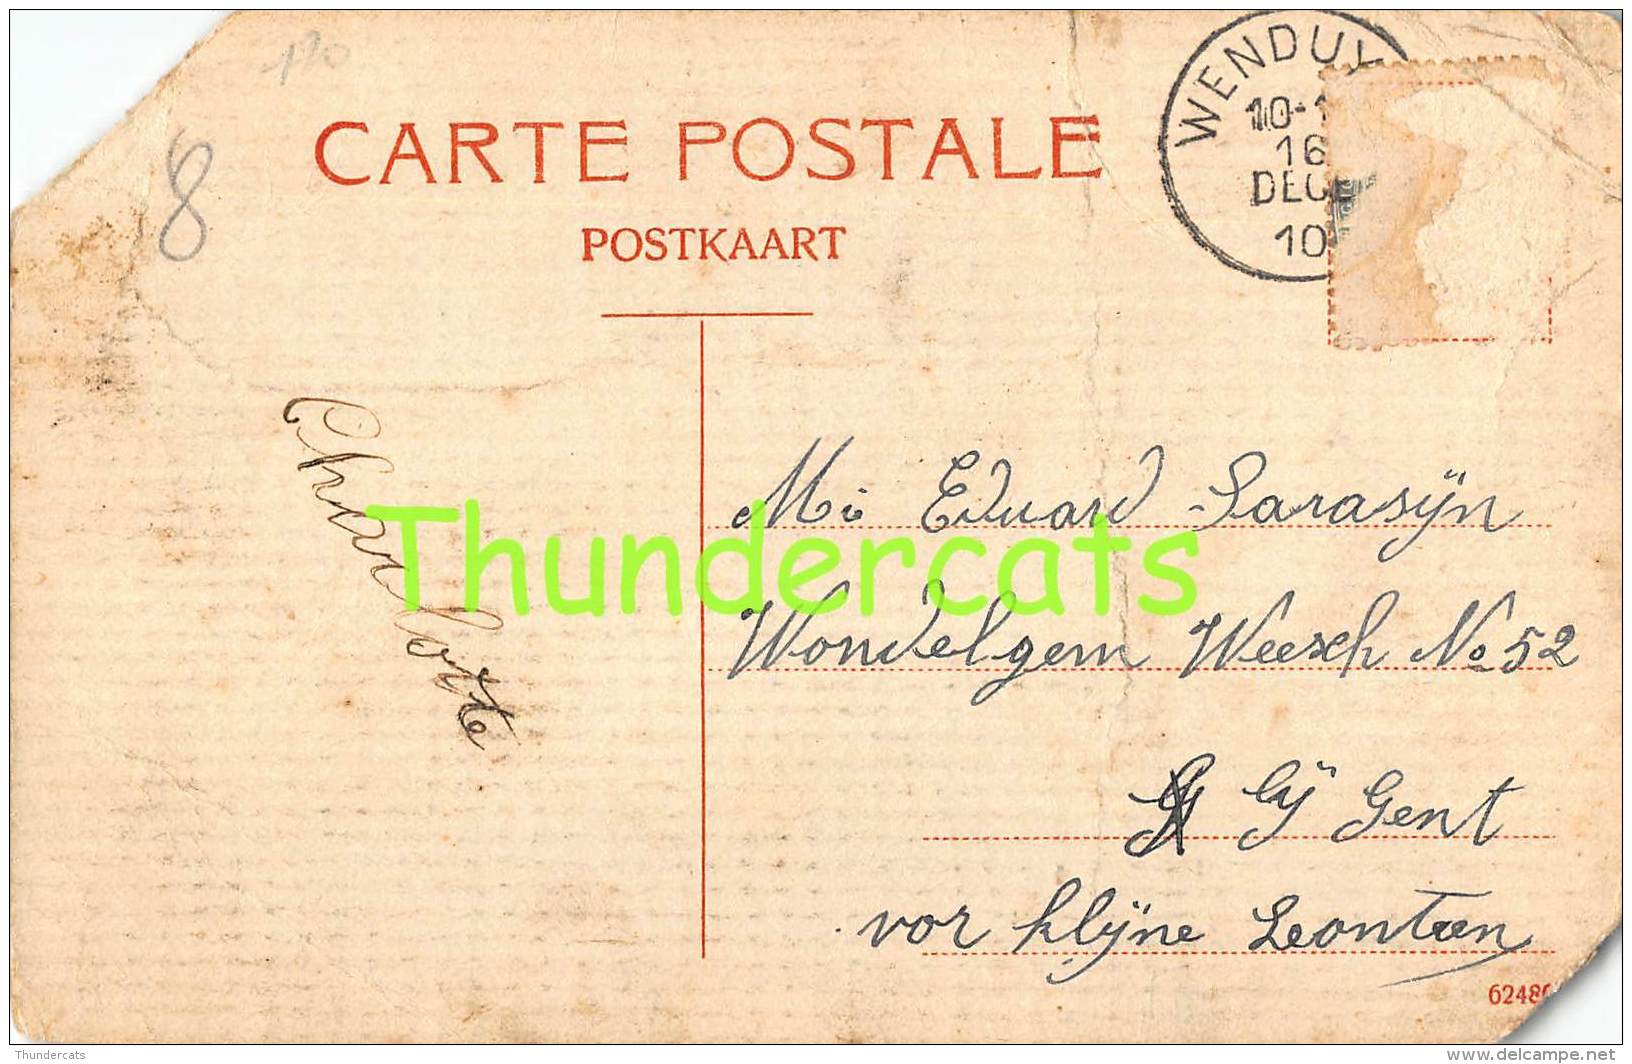 170
8
CARTE POSTALE
POSTKAART
WENDUY
10-1
16
DEC
10
Charlotte
Thundercats
Mi Eduard Sarasÿn
Wondelgem Weesch No 52
Bÿ Gent
vor klÿne Leontien
6248
Thundercats
www.delcampe.net